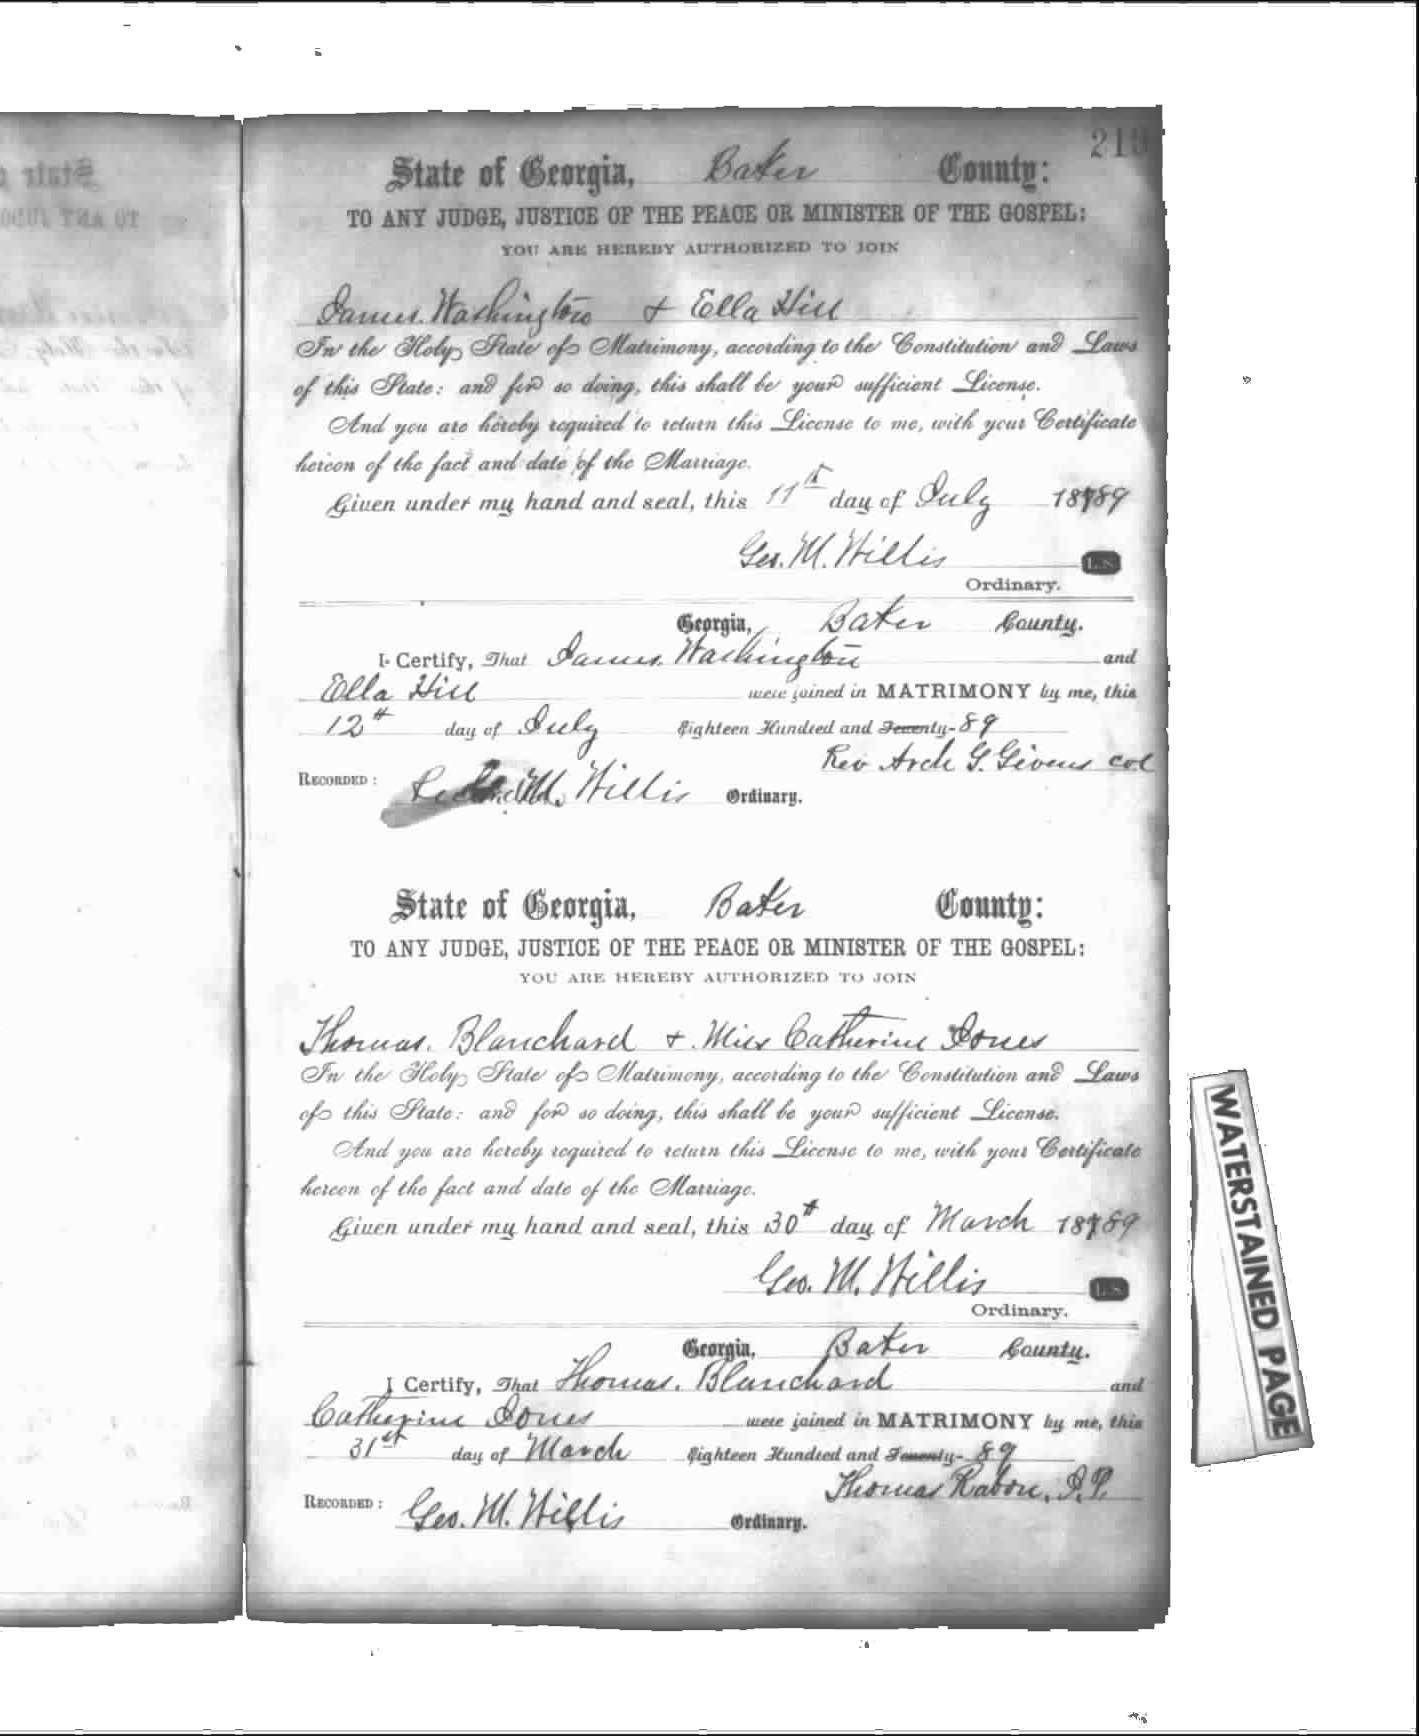 219
State of Georgia, Baker County:
TO ANY JUDGE, JUSTICE OF THE PEACE OR MINISTER OF THE GOSPEL:
YOU ARE HEREBY AUTHORIZED TO JOIN
James. Washington & Ella Hill
In the Holy State of Matrimony, according to the Constitution and Laws
of this State: and for so doing, this shall be your sufficient License.
And you are hereby required to return this License to me, with your Certificate
hereon of the fact and date of the Marriage.
Given under my hand and seal, this 11th day of July 18789
Geo. M. Willis L.S.
Ordinary.
Georgia, Baker County.
I Certify, That James. Washington and
Ella Hill were joined in MATRIMONY by me, this
12th day of July Eighteen Hundred and Seventy-89
Rev Arch G. Givens col
RECORDED: M. Willis Ordinary.
State of Georgia, Baker County:
TO ANY JUDGE, JUSTICE OF THE PEACE OR MINISTER OF THE GOSPEL:
YOU ARE HEREBY AUTHORIZED TO JOIN
Thomas. Blanchard & Miss Catherine Jones
In the Holy State of Matrimony, according to the Constitution and Laws
of this State: and for so doing, this shall be your sufficient License.
And you are hereby required to return this License to me, with your Certificate
hereon of the fact and date of the Marriage.
Given under my hand and seal, this 30th day of March 18789
Geo. M. Willis L.S.
Ordinary.
Georgia, Baker County.
I Certify, That Thomas. Blanchard and
Catherine Jones were joined in MATRIMONY by me, this
31st day of March Eighteen Hundred and Seventy-89
Thomas Rabon, J.P.
RECORDED: Geo. M. Willis Ordinary.
WATERSTAINED PAGE